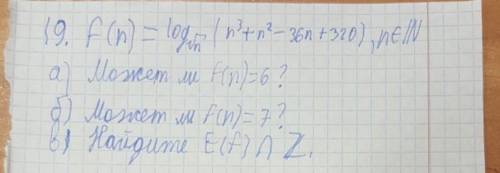 19. f(n) = log_{√n} (n³+n²-36n+320), n∈ℕ
а) Может ли f(n)=6?
б) Может ли f(n)=7?
в) Найдите E(f)∩ℤ.